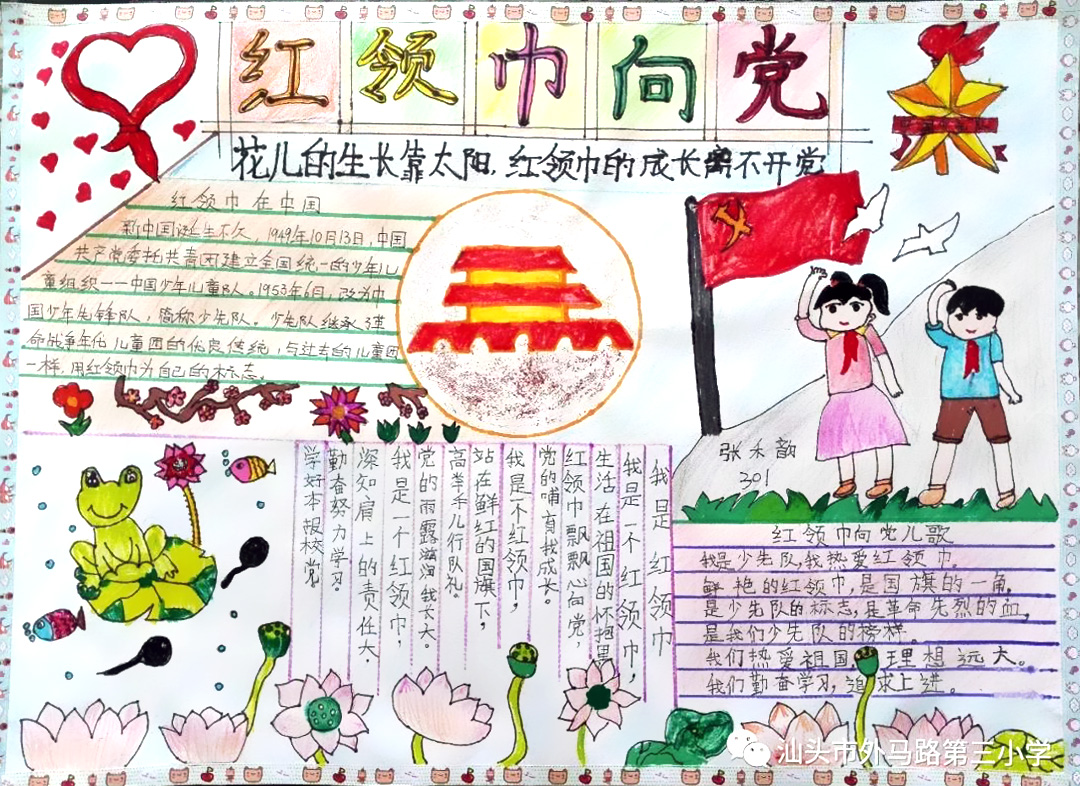 红领巾向党
花儿的生长靠太阳,红领巾的成长离不开党
红领巾在中国
新中国诞生不久,1949年10月13日,中国
共产党委托共青团建立全国统一的少年儿
童组织——中国少年儿童队。1953年6日,改为中
国少年先锋队,简称少先队。少先队继承了革
命战争年代儿童团的优良传统,与过去的儿童团
一样,用红领巾为自己的标志。
我是红领巾
我是一个红领巾,
生活在祖国的怀抱里
红领巾飘飘心向党,
党的哺育我成长。
我是个红领巾,
站在鲜红的国旗下,
高举手儿行队礼。
党的雨露滋润我长大。
我是一个红领巾,
深知肩上的责任大,
勤奋努力学习。
学好本报校党。
张禾韵
301
红领巾向党儿歌
我是少先队,我热爱红领巾。
鲜艳的红领巾,是国旗的一角,
是少先队的标志,是革命先烈的血,
是我们少先队的榜样。
我们热爱祖国,理想远大。
我们勤奋学习,追求上进。
汕头市外马路第三小学